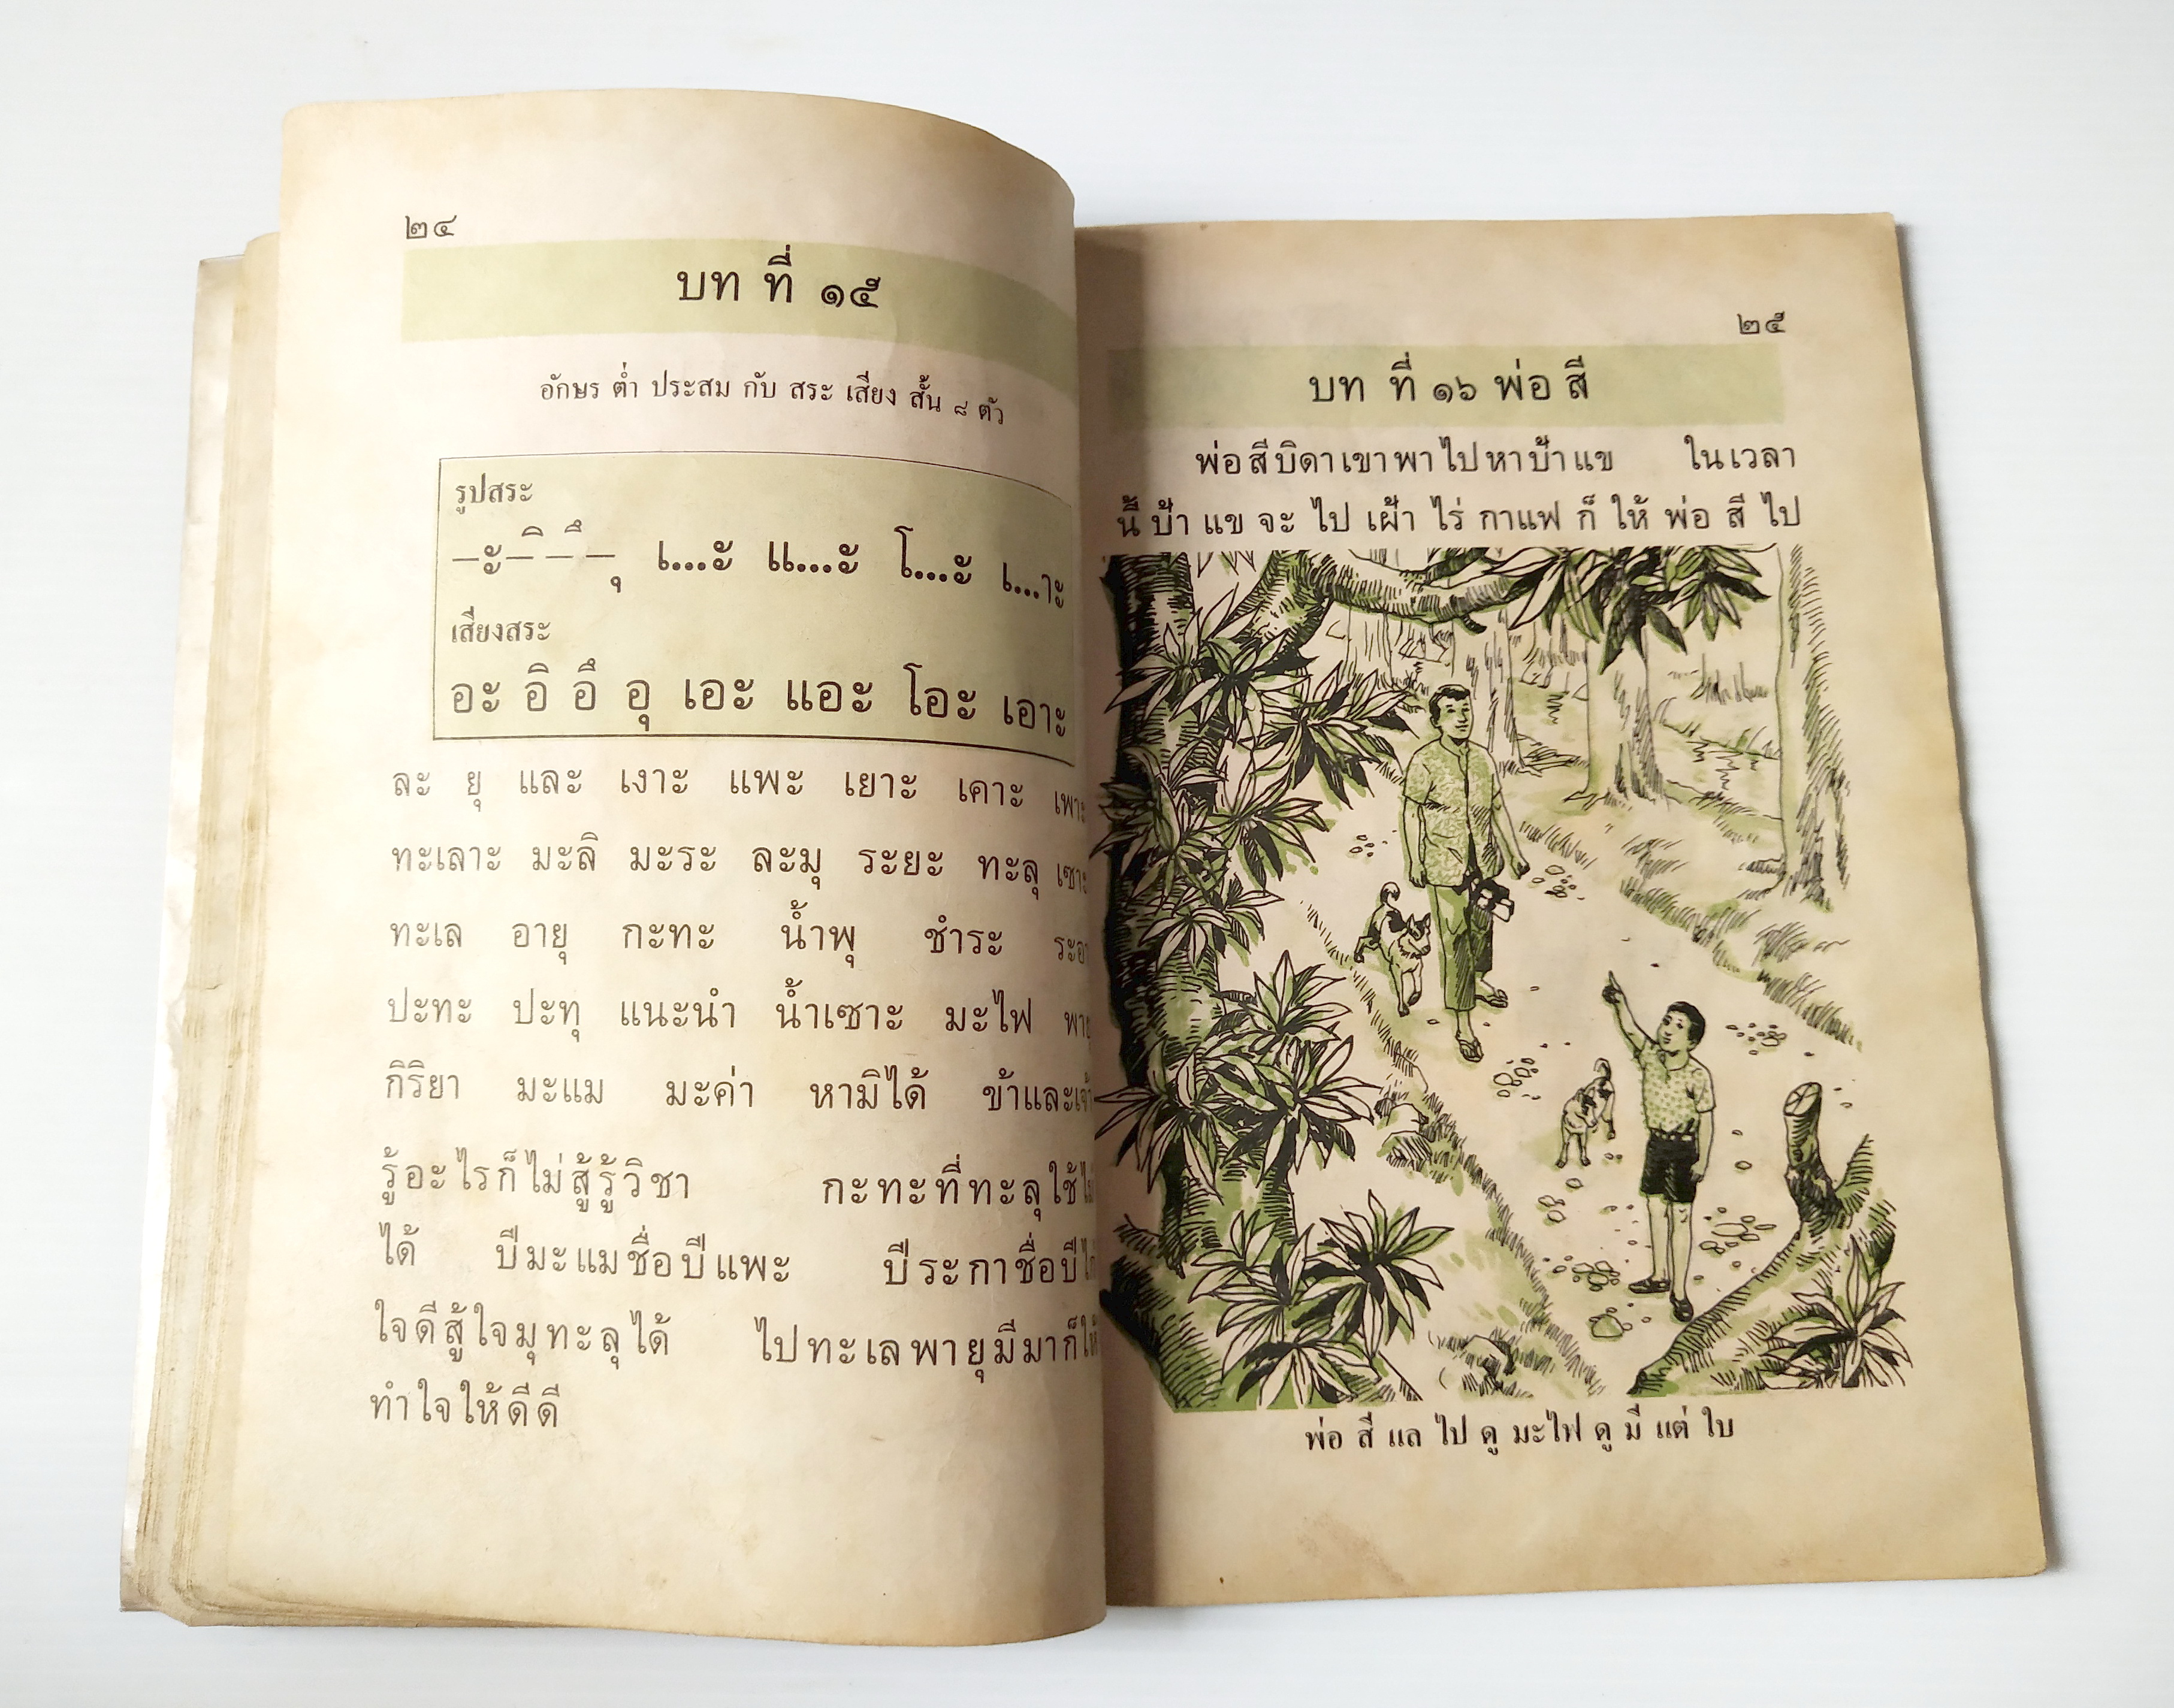 ๒๔
บท ที่ ๑๕
อักษร ต่ำ ประสม กับ สระ เสียง สั้น ๘ ตัว
รูปสระ
–ะ –ิ –ึ –ุ เ...ะ แ...ะ โ...ะ เ...าะ
เสียงสระ
อะ อิ อึ อุ เอะ แอะ โอะ เอาะ
ละ ยุ และ เงาะ แพะ เยาะ เคาะ เพาะ
ทะเลาะ มะลิ มะระ ละมุ ระยะ ทะลุ เซาะ
ทะเล อายุ กะทะ น้ำพุ ชำระ
ปะทะ ปะทุ แนะนำ น้ำเซาะ มะไฟ
กิริยา มะแม มะค่า หามิได้ ข้าและเจ้า
รู้อะไรก็ไม่สู้รู้วิชา กะทะที่ทะลุใช้ไม่
ได้ ปีมะแมชื่อปีแพะ ปีระกาชื่อปี
ใจดีสู้ใจมุทะลุได้ ไปทะเลพายุมีมาก็ให้
ทำใจให้ดีดี
๒๕
บท ที่ ๑๖ พ่อ สี
พ่อสีบิดาเขาพาไปหาป้าแข ในเวลา
นี้ ป้า แข จะ ไป เฝ้า ไร่ กาแฟ ก็ ให้ พ่อ สี ไป
พ่อ สี แล ไป ดู มะไฟ ดู มี แต่ ใบ